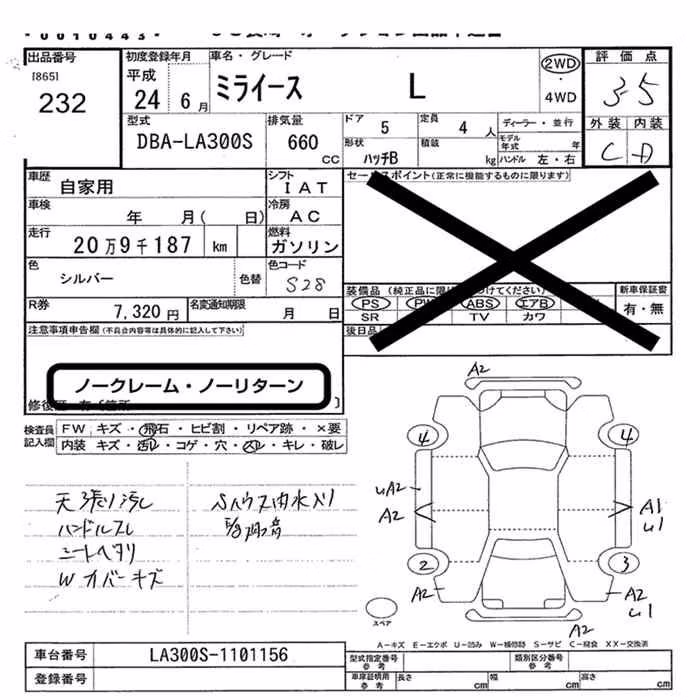 0010443
出品番号
[865]
232
初度登録年月
平成
24 6月
車名・グレード
ミライース L
2WD
・
4WD
評価点
3.5
外装 内装
C D
型式
DBA-LA300S
排気量
660
CC
ドア
5
定員
4 人
形状
ハッチB
積載
kg
ディーラー・並行
モデル年式 年
ハンドル 左・右
車歴
自家用
シフト
IAT
車検
年 月( 日)
冷房
AC
走行
20万9千187 km
燃料
ガソリン
色
シルバー
色替
色コード
S28
R券
7,320 円
名変通知期限
月 日
セールスポイント(正常に機能するものに限ります)
装備品(純正品に限り けてください)
PS PW ABS エアB
SR TV カワ
新車保証書
有・無
後日品
注意事項申告欄(不具合内容等は具体的に記入して下さい)
ノークレーム・ノーリターン
検査員記入欄
FW キズ・飛石・ヒビ割・リペア跡・×要
内装 キズ・汚レ・コゲ・穴・スレ・キレ・破レ
天張り汚レ
ハンドルスレ
シートヘタリ
W カバーキズ
A2
4 4
uA2
A2
A1
u1
2 3
A2
A2
u1
A2
スペア
A-キズ E-エクボ U-凹み W-補修跡 S-サビ C-腐食 XX-交換済
車台番号
LA300S-1101156
登録番号
型式指定番号
参考
類別区分番号
参考
車庫証明用
参考
長さ cm
幅 cm
高さ cm